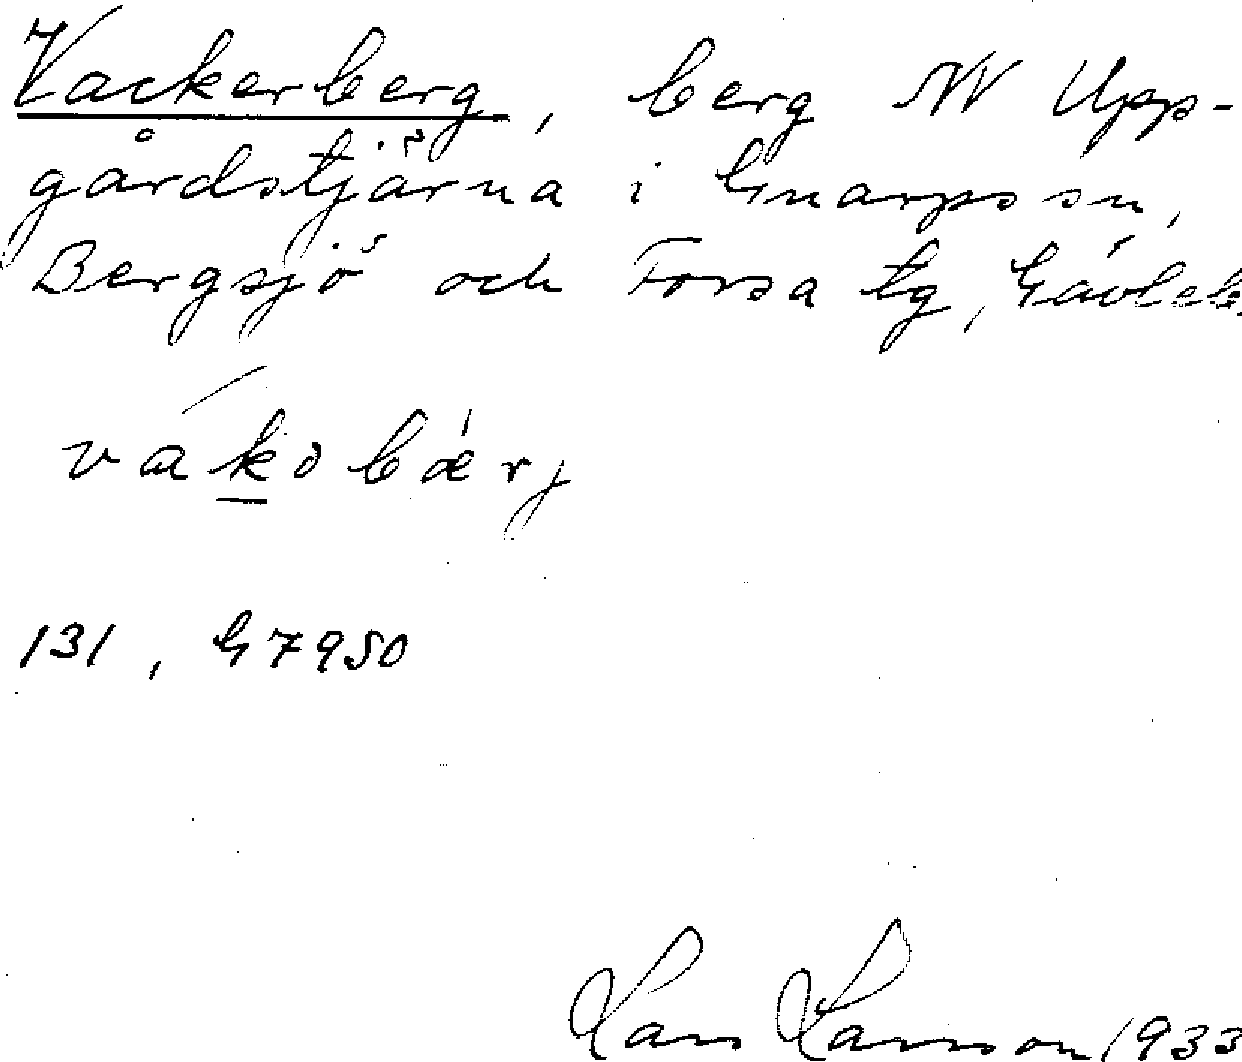 Vackerberg, berg NV Upp-
gårdstjärna i Gnarps sn,
Bergsjö och Forsa tg, Gävleb.
vakobærj
131, G7950
Lars Larsson 1933